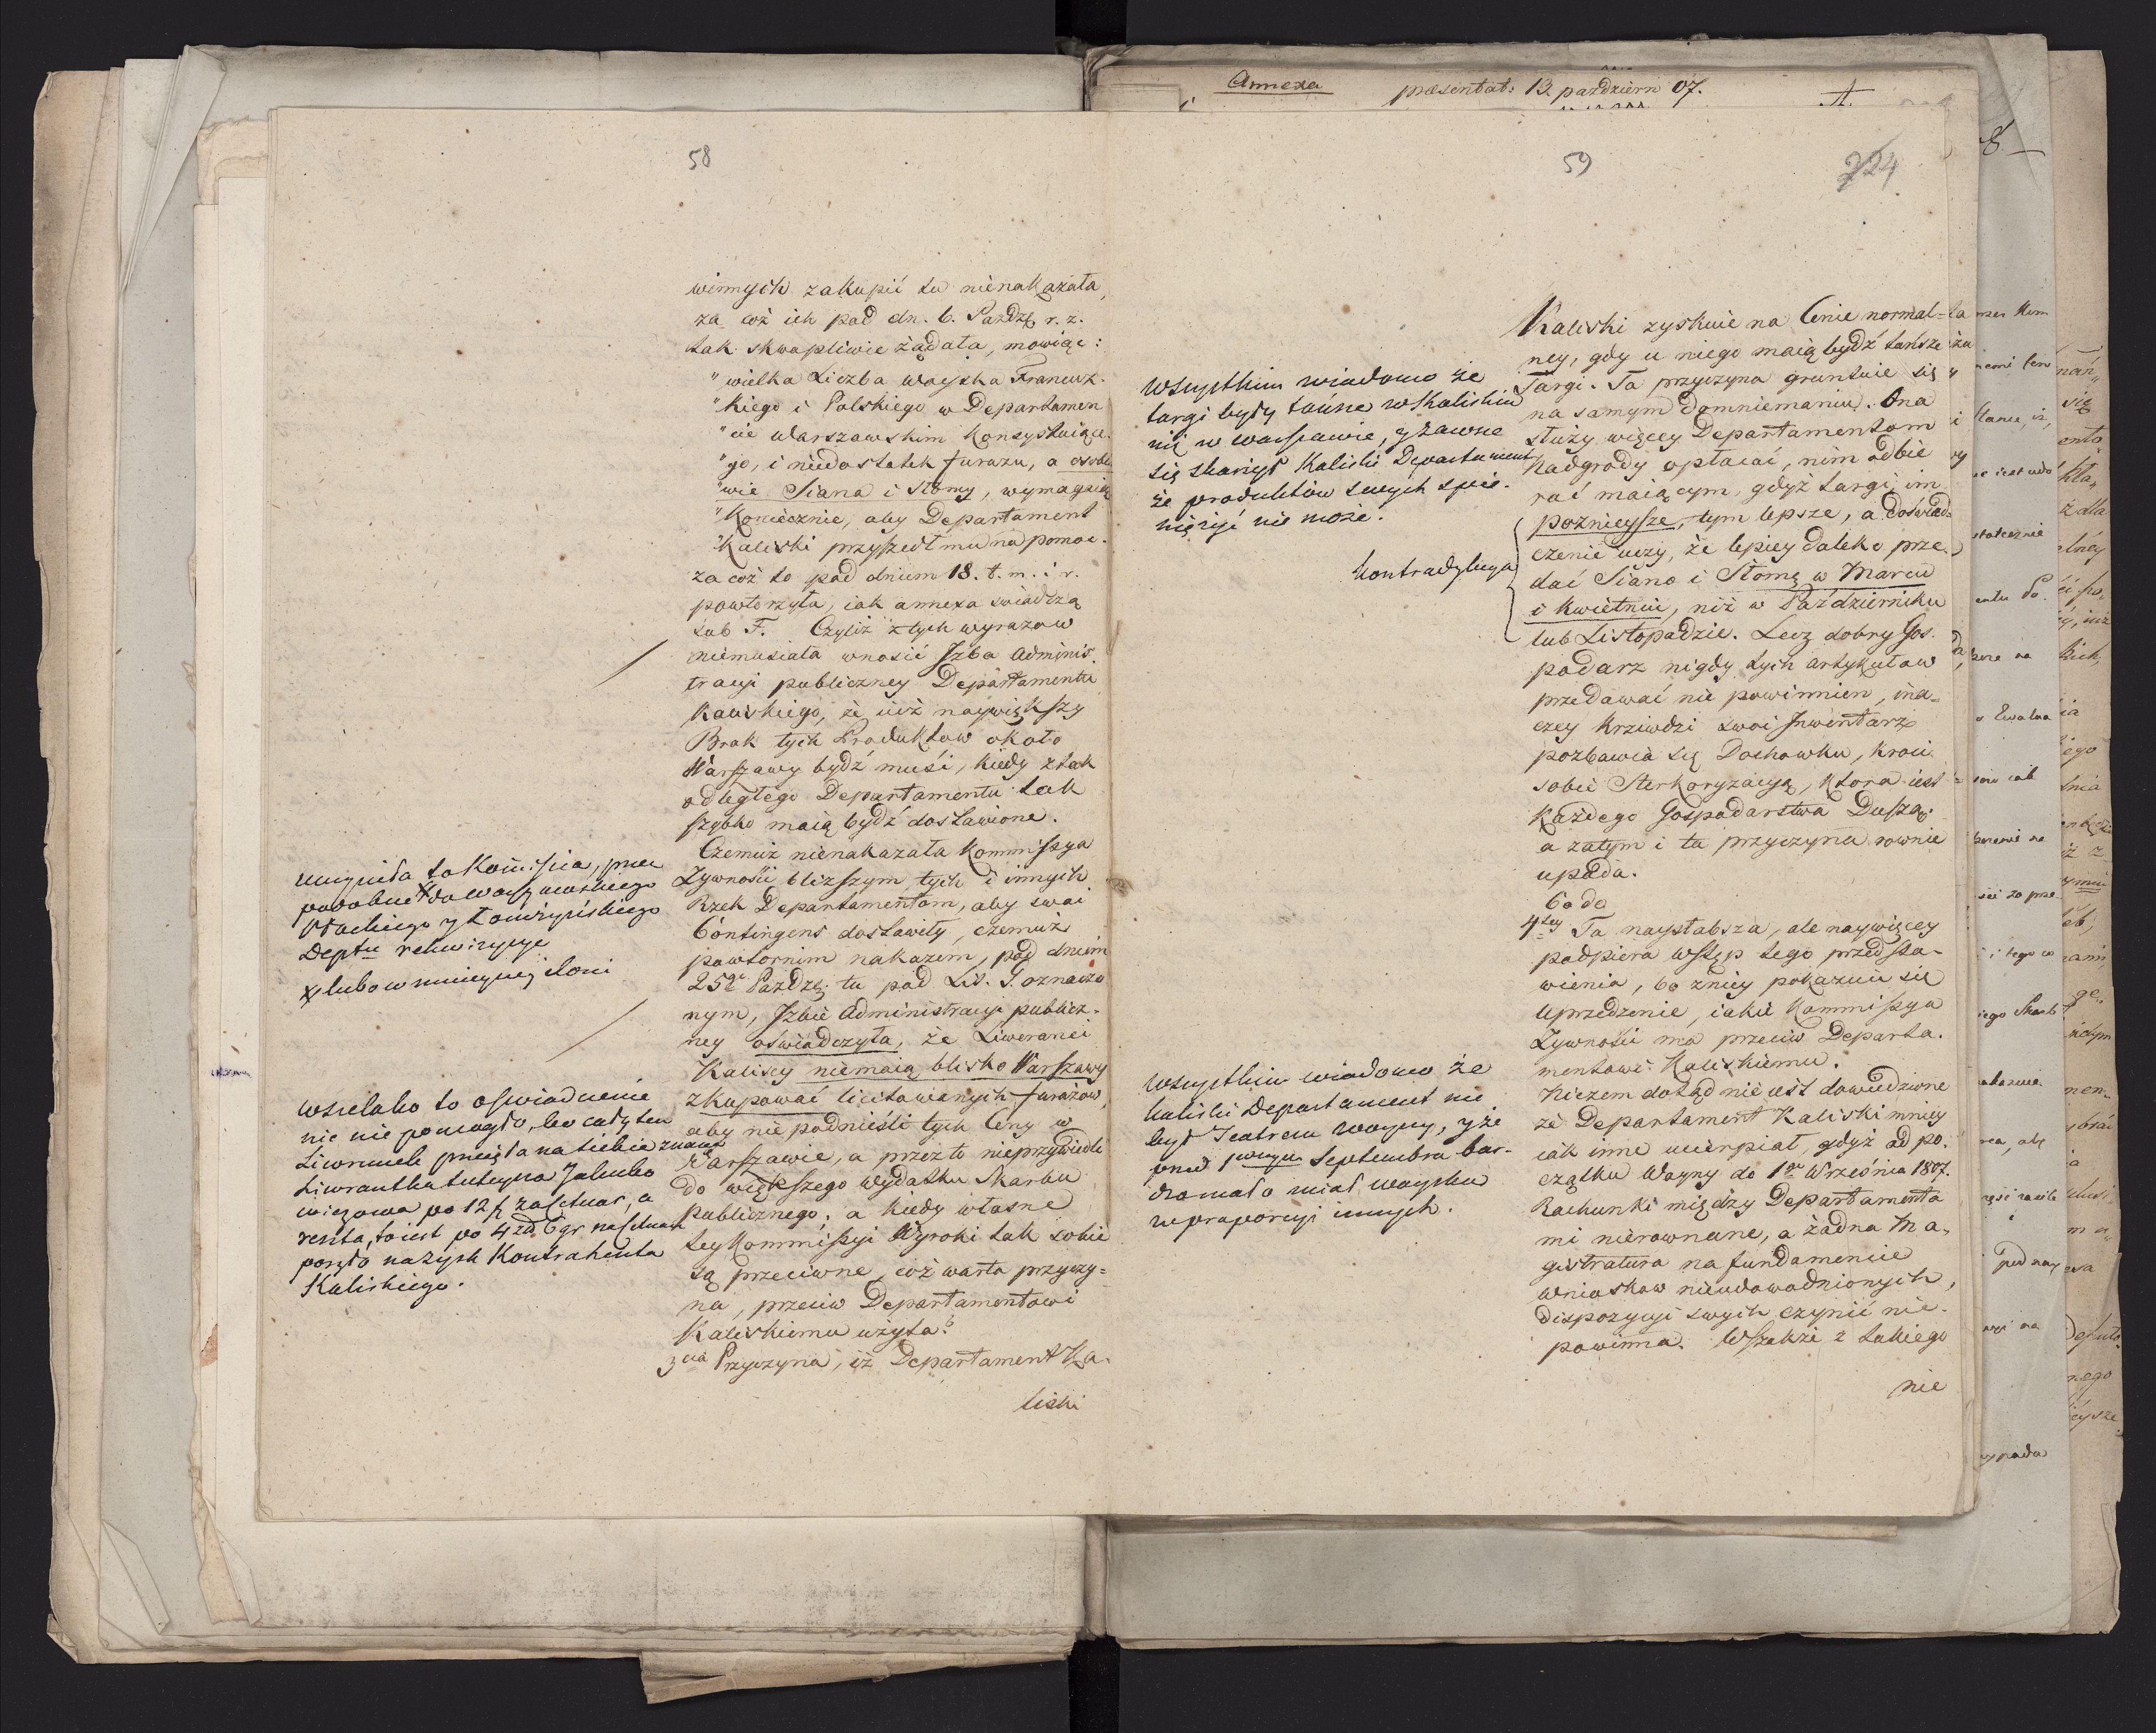 58
winnych zakupić tu nienakazała,
za coż ich pod dn. 6. Paźdź. r. z.
tak skwapliwie żądała, mowiąc:
" wielka Liczba Woyska Francuz-
" kiego i Polskiego w Departamen
" cie Warszawskim konsystuiące-
" go, i niedostatek furażu, a osobli
" wie Siana i Słomy, wymagaią
" koniecznie, aby Departament
" Kaliski przyszedł mu na pomoc.
za coż to pod dniem 18. t. m. i r.
powtorzyła, iak annexa świadczą
sub F. Czyliż z tych wyrazow
niemusiała wnosić Jzba Adminis-
tracyi publiczney Departamentu
Kaliskiego, że iuż naywiększy
Brak tych Produktow około
Warszawy bydź musi, kiedy z tak
odległego Departamentu tak
szybko maią bydź dostawione.
Czemuż nienakazała Kommissya
Żywności bliższym tych i innych
Rzek Departamentom, aby swoi
Contingens dostawiły, czemuż
powtornim nakazem, pod dniem
25go Paźdź. tu pod Lit. G. oznaczo
nym, Jzbie Administracyi publicz-
ney oświadczyła, że Liweranci
Kaliscy niemaią blisko Warszawy
zkupować licitowanych furażow,
aby nie podnieśli tych Ceny w
Warszawie, a przez to nieprzywiedli
do większego wydatku Skarbu
publicznego. a kiedy własne
tey Kommissyi Wyroki tak sobie
są przeciwne, coż warta przyczy-
na, przeciw Departamentowi
Kaliskiemu użyta?
3cia Przyczyna, iż Departament Ka-
liski
uczyniła to Komissia, przez
podobne # do Warszawskiego
Płockiego y Łomżyńskiego
Deptu rekwizycye
# lubo w mnieyszej ilości
wszelako to oswiadczenie
nic nie pomogło, bo cały ten
Liwerunek przyięła na siebie znana
Liwrantka tutejsza Jakubo
wiczowa po 12 f za Centnar, a
reszta, to iest po 4 zł 6 gr na Centnar
poszło na zysk Kontrahenta
Kaliskiego.
Annexa
præsentat: 13 październ 07.
A.
59
224
Kaliski zyskuie na Cenie normal-
ney, gdy u niego maią bydź tańsze
Targi. Ta przyczyna gruntuie się
na samym domniemaniu. Ona
służy więcey Departamentom
Nadgrody opłacać, nim odbie
rać maiącym, gdyż targi im
poznieysze, tym lepsze, a doświad-
czenie uczy, że lepiey daleko prze-
dać Siano i Słomę w Marcu
i Kwietniu, niż w Październiku
lub Listopadzie. Lecz dobry Gos-
podarz nigdy tych artykułow
przedawać nie powinnien, ina-
czey krziwdzi swoi Jnwentarz
pozbawia się Dochowku, kroci
sobie Sterkoryzacyą, ktora iest
każdego Gospodarstwa Duszą.
a zatym i ta przyczyna rownie
upada.
Co do
4tey Ta naysłabsza, ale naywięcey
podpiera wstęp tego przedsta-
wienia, bo z niey pokazuie się
Uprzedzenie, iakie Kommissya
Żywności ma przeciw Departa-
mentowi Kaliskiemu.
Niczem dotąd nie iest dowiedzione
że Departament Kaliski mniey
iak inne ucierpiał, gdyż od po-
czątku Woyny do 1go Września 1807.
Rachunki między Departamenta
mi nierownane, a żadna Ma-
gistratura na fundamencie
wnioskow nieudowodnionych,
Dispozycyi swych czynić nie-
powinna. Wszakże z takiego
nie
Wszystkim wiadomo że
targi były tańsze w Kaliskim
niż w Warszawie, y zawsze
się skarżył Kaliski Departament
że produktow swych spie-
niężyć nie może.
Kontradykcya
Wszystkim wiadomo że
Kaliski Departament nie
był Teatrem Woyny, y że
przed 1wszym Septembra bar-
dzo mało miał woyska
w proporcyi innych.